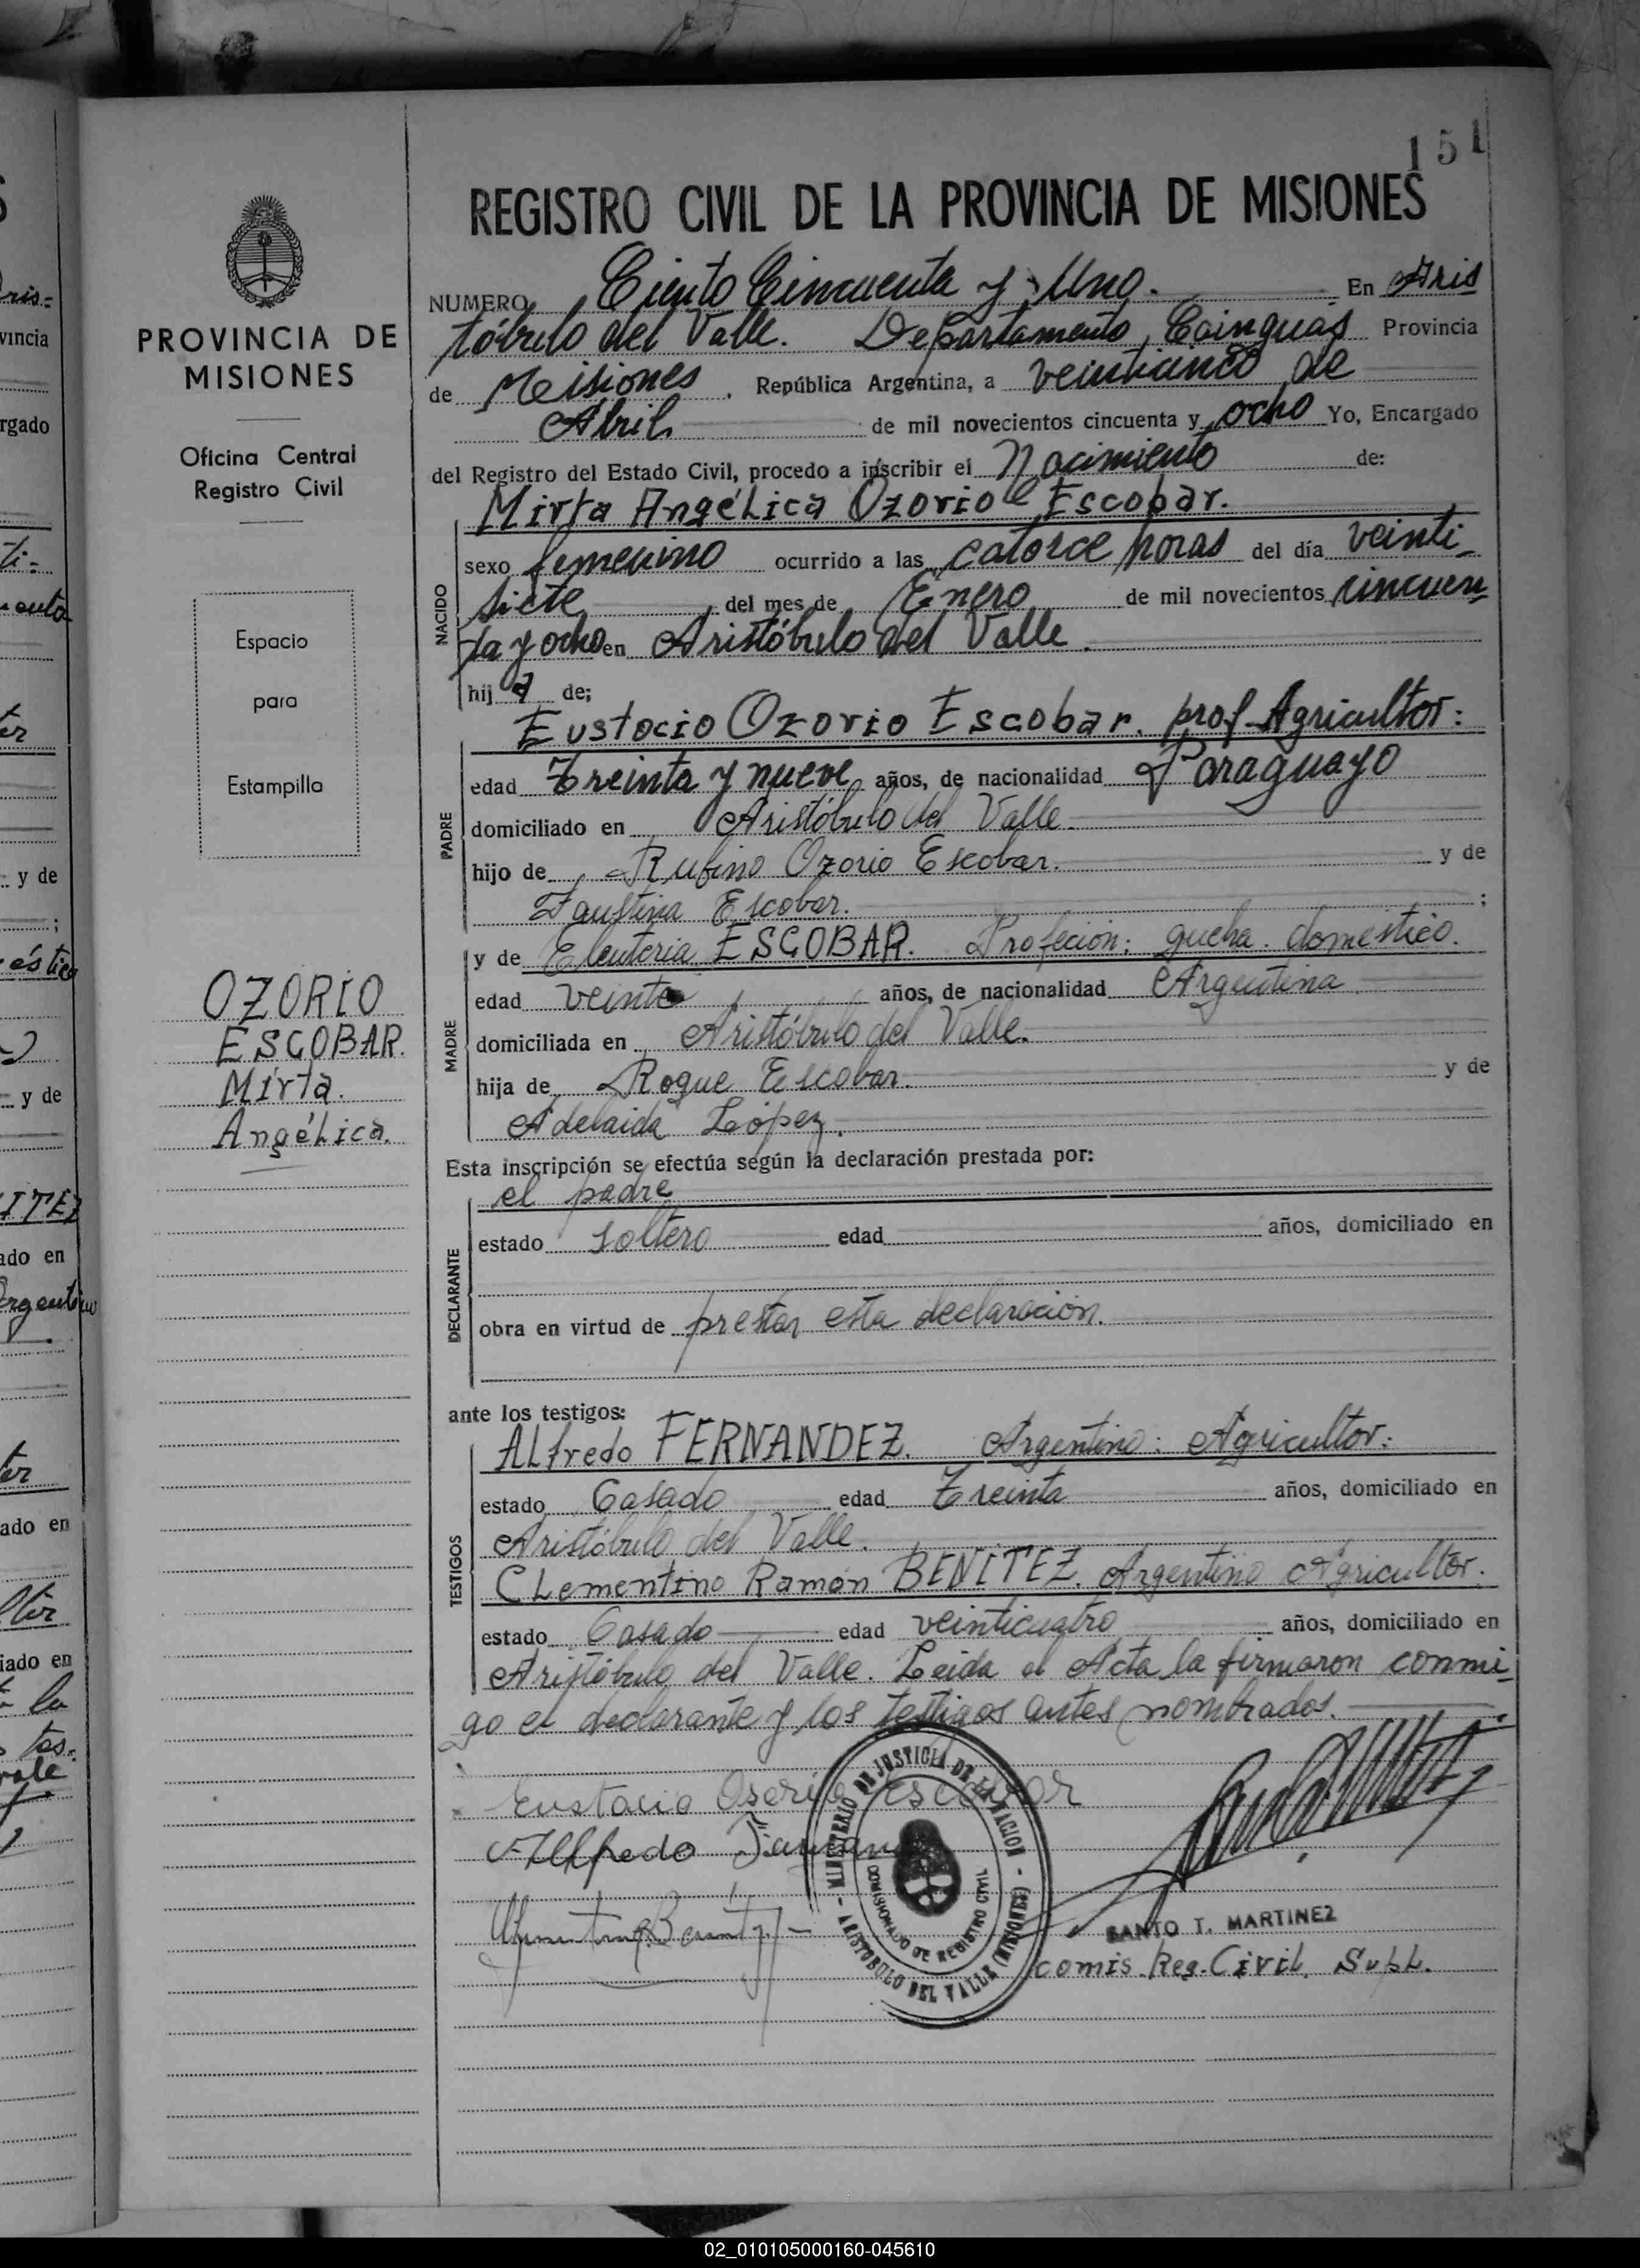 151
REGISTRO CIVIL DE LA PROVINCIA DE MISIONES
PROVINCIA DE
MISIONES
Oficina Central
Registro Civil
Espacio
para
Estampilla
OZORIO
ESCOBAR.
Mirta.
Angélica.
NUMERO Ciento Cincuenta y Uno. En Aris
tóbulo del Valle. Departamento, Cainguas Provincia
de Misiones. República Argentina, a veinticinco de
Abril de mil novecientos cincuenta y ocho Yo, Encargado
del Registro del Estado Civil, procedo a inscribir el Nacimiento de:
Mirta Angélica Ozorio Escobar.
NACIDO
sexo femenino ocurrido a las catorce horas del día veinti-
siete del mes de Enero de mil novecientos cincuen
ta y ocho en Aristóbulo del Valle.
hij a de;
Eustocio Ozorio Escobar. prof. Agricultor:
PADRE
edad Treinta y nueve años, de nacionalidad Paraguayo
domiciliado en Aristóbulo del Valle.
hijo de Rufino Ozorio Escobar. y de
Faustina Escobar. ;
MADRE
y de Eleuteria ESCOBAR. Profecion: queha. domestico.
edad veinte años, de nacionalidad Argentina.
domiciliada en Aristóbulo del Valle.
hija de Roque Escobar. y de
Adelaida López.
Esta inscripción se efectúa según la declaración prestada por:
el padre
DECLARANTE
estado soltero edad años, domiciliado en
obra en virtud de prestar esta declaración.
ante los testigos:
TESTIGOS
Alfredo FERNANDEZ. Argentino: Agricultor:
estado Casado edad Treinta años, domiciliado en
Aristóbulo del Valle.
Clementino Ramón BENITEZ. Argentino Agricultor.
estado Casado edad veinticuatro años, domiciliado en
Aristóbulo del Valle. Leida el Acta la firmaron conmi-
go el declarante y los testigos antes nombrados.
Eustacio Osorio escobar
Alfredo
MINISTERIO DE JUSTICIA DE LA NACION
COMISIONADO DE REGISTRO CIVIL
ARISTOBULO DEL VALLE (MISIONES)
SANTO T. MARTINEZ
comis. Reg. Civil. Supl.
02_010105000160-045610